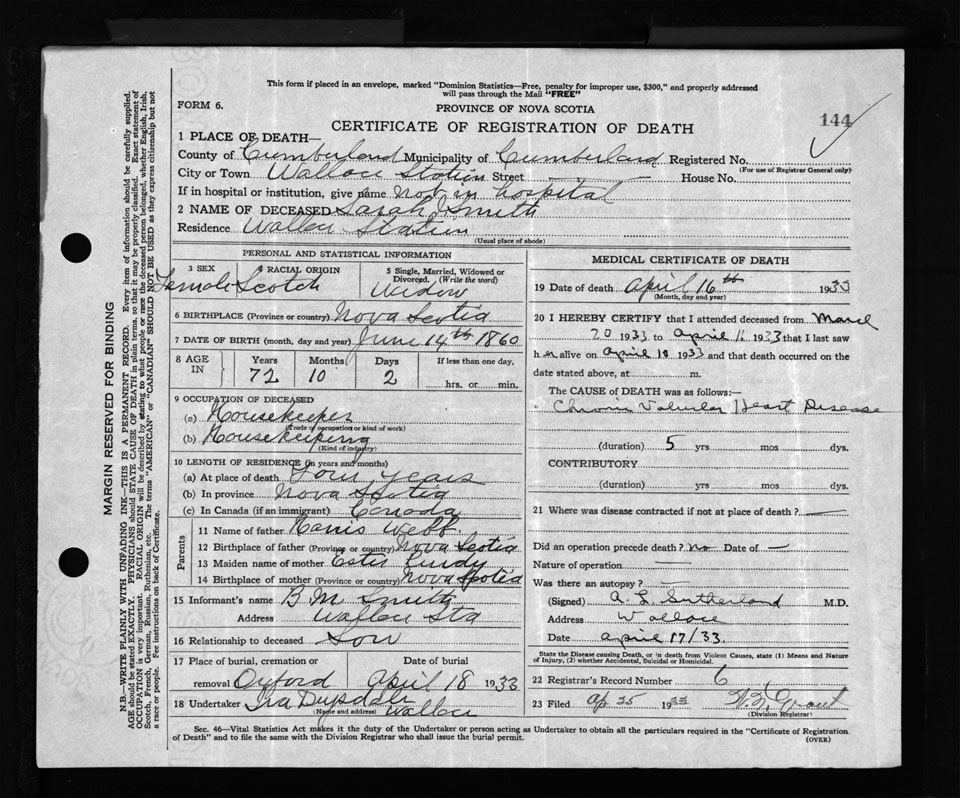 This form if placed in an envelope, marked "Dominion Statistics—Free, penalty for improper use, $300," and properly addressed
will pass through the Mail "FREE"
FORM 6.
PROVINCE OF NOVA SCOTIA
CERTIFICATE OF REGISTRATION OF DEATH
144
1 PLACE OF DEATH—
County of Cumberland Municipality of Cumberland Registered No.
(For use of Registrar General only)
City or Town Wallace Station Street — House No.
If in hospital or institution, give name not in hospital
2 NAME OF DECEASED Sarah J Smith
Residence Wallace Station
(Usual place of abode)
PERSONAL AND STATISTICAL INFORMATION
3 SEX Female
4 RACIAL ORIGIN Scotch
5 Single, Married, Widowed or Divorced. (Write the word)
Widow
6 BIRTHPLACE (Province or country) Nova Scotia
7 DATE OF BIRTH (month, day and year) June 14th 1860
8 AGE IN Years Months Days If less than one day,
72 10 2 hrs. or min.
9 OCCUPATION OF DECEASED
(a) Housekeeper
(Trade or occupation or kind of work)
(b) Housekeeping
(Kind of industry)
10 LENGTH OF RESIDENCE (in years and months)
(a) At place of death Four years
(b) In province Nova Scotia
(c) In Canada (if an immigrant) Canada
Parents
11 Name of father Webb
12 Birthplace of father (Province or country) Nova Scotia
13 Maiden name of mother Ester
14 Birthplace of mother (Province or country) Nova Scotia
15 Informant's name B M Smith
Address Wallace Sta
16 Relationship to deceased Son
17 Place of burial, cremation or Date of burial
removal Oxford April 18 1933
18 Undertaker Ira Wallace
(Name and address)
MEDICAL CERTIFICATE OF DEATH
19 Date of death April 16th 1933
(Month, day and year)
20 I HEREBY CERTIFY that I attended deceased from March
20 1933 to April 16 1933 that I last saw
h er alive on April 10 1933 and that death occurred on the
date stated above, at m.
The CAUSE of DEATH was as follows:
Chronic Valvular Heart Disease
(duration) 5 yrs mos dys.
CONTRIBUTORY
(duration) yrs mos dys.
21 Where was disease contracted if not at place of death? —
Did an operation precede death? no Date of —
Nature of operation —
Was there an autopsy? —
(Signed) A. L. Sutherland M.D.
Address Wallace
Date April 17/33.
State the Disease causing Death, or in death from Violent Causes, state (1) Means and Nature
of Injury, (2) whether Accidental, Suicidal or Homicidal.
22 Registrar's Record Number 6
23 Filed Ap 25 1933 Grant
(Division Registrar)
Sec. 46—Vital Statistics Act makes it the duty of the Undertaker or person acting as Undertaker to obtain all the particulars required in the "Certificate of Registration
of Death" and to file the same with the Division Registrar who shall issue the burial permit.
(OVER)
MARGIN RESERVED FOR BINDING
N.B.—WRITE PLAINLY WITH UNFADING INK—THIS IS A PERMANENT RECORD. Every item of information should be carefully supplied.
AGE should be stated EXACTLY. PHYSICIANS should STATE CAUSE OF DEATH in plain terms, so that it may be properly classified. Exact statement of
OCCUPATION is very important. RACIAL ORIGIN will be described by stating to what people or race the deceased person belonged, whether English, Irish,
Scotch, French, German, Russian, Ruthenian, etc. The terms "AMERICAN" or "CANADIAN" SHOULD NOT BE USED as they express citizenship but not
a race or people. See instructions on back of Certificate.